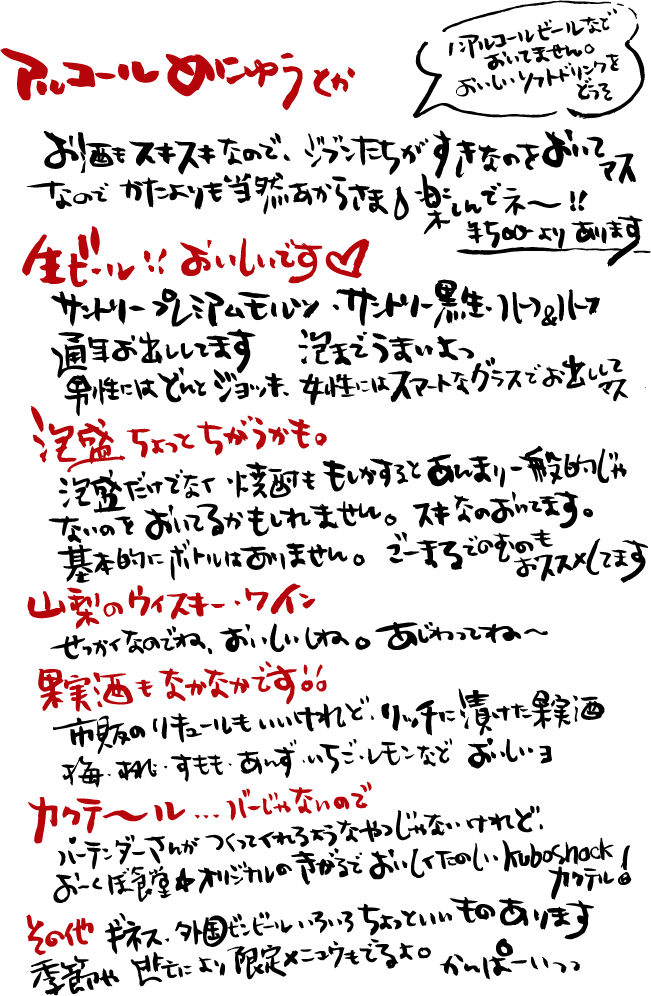 アルコールめにゅうとか
ノンアルコールビールなど
おいてません。
おいしいソフトドリンクを
どうぞ
お酒もスキスキなので、ジブンたちがすきなのをおいてマス
なのでかたよりも当然あからさま♪楽しんでネ〜!!
¥500よりあります
生ビール!!おいしいです♡
サントリープレミアムモルツ・サントリー黒生・ハーフ&ハーフ
通年お出ししてます 泡までうまいよっ
男性にはどんとジョッキ、女性にはスマートなグラスでお出ししてマス
泡盛ちょっとちがうかも。
泡盛だけでなく焼酎ももしかするとあんまり一般的じゃ
ないのをおいてるかもしれません。スキなのおいてます。
基本的にボトルはありません。ごーまるでのむのもおススメしてます
山梨のウィスキー・ワイン
せっかくなのでね、おいしいしね。あじわってね〜
果実酒もなかなかです
市販のリキュールもいいけれど、リッチに漬けた果実酒
梅・桃・すもも・あんず・いちご・レモンなど おいしいヨ
カクテ〜ル…バーじゃないので
バーテンダーさんがつくってくれるようなやつじゃないけれど、
おーくぼ食堂★オリジナルのきがるでおいしくたのしいkuboshock
カクテル!
その他 ギネス・外国ビンビールいろいろちょっといいものあります
季節や によい限定メニュウもでるよ。かんぱーいっっ